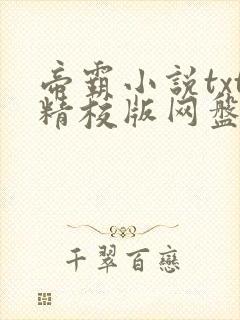 帝霸小説txt
精校版网盘
千翠百戀